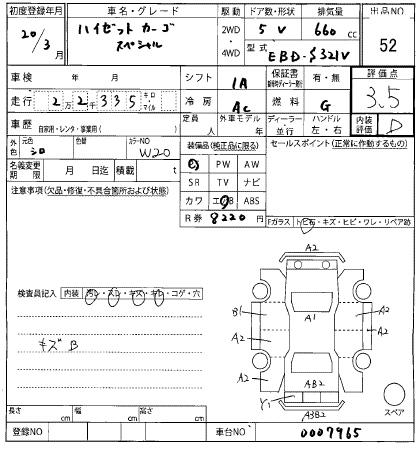 初度登録年月 車名・グレード 駆動 ドア数・形状 排気量 出品NO
20/3月 ハイゼットカーゴ スペシャル 2WD・4WD 5 V 660 cc 52
型式 EBD-S321V
車検 年 月 シフト 1A 保証書 有・無 評価点
走行 2万2千335 キロ・マイル 冷房 AC 燃料 G 3.5
車歴 自家用・レンタ・事業用( ) 定員 人 外車モデル 年 ディーラー・並行 ハンドル 左・右 内装評価 D
外色 元色 シロ 色替 カラーNO W20 装備品(純正品に限る) セールスポイント(正常に作動するもの)
名義変更期限 月 日迄 積載 t PS PW AW
注意事項(欠品・修復・不具合箇所および状態) SR TV ナビ
カワ エアB ABS
R券 8220 円 Fガラス トビ石・キズ・ヒビ・ワレ・リペア跡
A2
検査員記入 内装 汚レ・スレ・キズ・キレ・コゲ・穴
B1 A1 A2
キズ B A2 A2
A2 AB2
Y1 A3B2 スペア
長さ cm 幅 cm 高さ cm
登録NO 車台NO 0007965